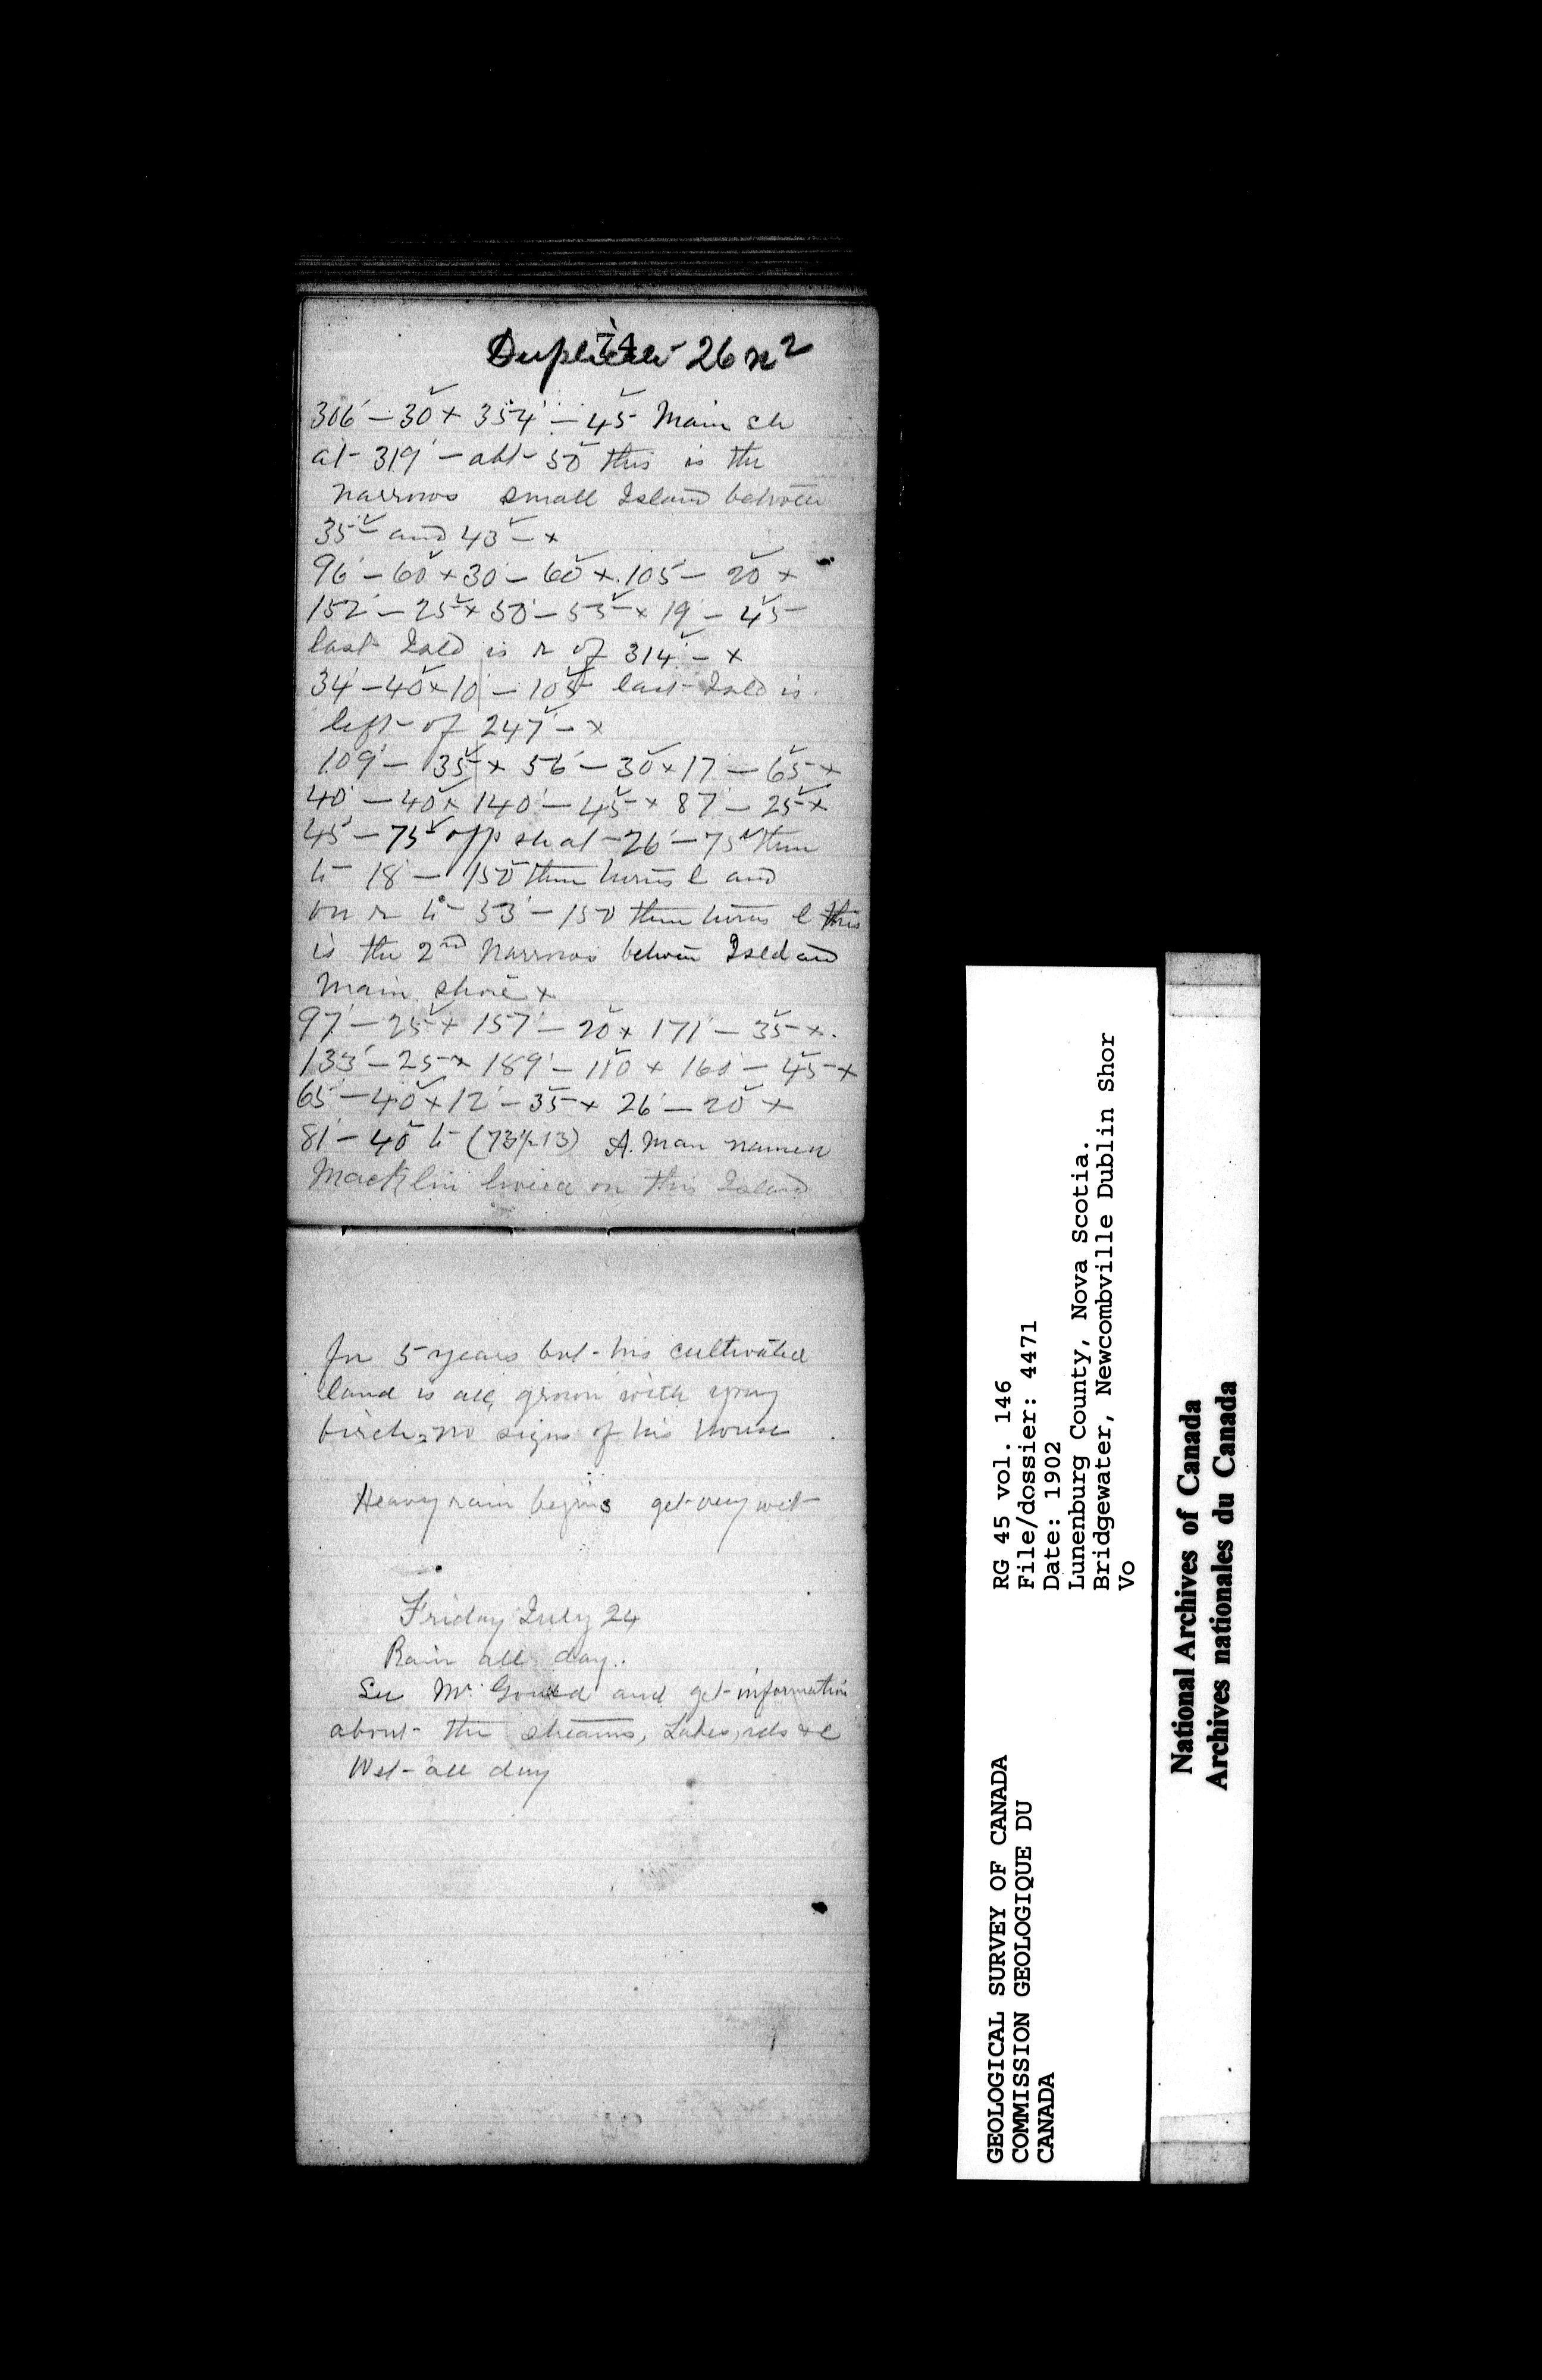 74
Duplicate 26 n 2
306' – 30 x 354' – 45 Main sh
at 319' – abt 50 this is the
narrows small Island between
35 and 43 – x
96' – 60 x 30' – 60 x 105' – 20 x
152' – 25 x 50' – 55 x 19' – 45
last Isld is r of 314' – x
34' – 40 x 10' – 105 last Isld is
left of 247' – x
109' – 35 x 56' – 30 x 17' – 65 x
40' – 40 x 140' – 45 x 87' – 25 x
45' – 75 opp sh at 26' – 75 then
to 18' – 150 then turns l and
on r to 53' – 150 then turns l this
is the 2nd narrows between Isld and
Main shore x
97' – 25 x 157' – 20 x 171' – 35 x
133' – 25 x 189' – 110 x 160' – 45 x
65' – 40 x 12' – 35 x 26' – 20 x
81' – 40 to (73 p 13) A. Man named
Macklin lived on this Island
for 5 years but his cultivated
land is all grown with young
birch, no signs of his house
Heavy rain begins get very wet
Friday July 24
Rain all day.
See Mr. and get information
about the streams, Lakes, rds &c
Wet all day
RG 45 vol. 146
File/dossier: 4471
Date: 1902
Lunenburg County, Nova Scotia.
Bridgewater, Newcombville Dublin Shor
Vo
GEOLOGICAL SURVEY OF CANADA
COMMISSION GEOLOGIQUE DU
CANADA
National Archives of Canada
Archives nationales du Canada